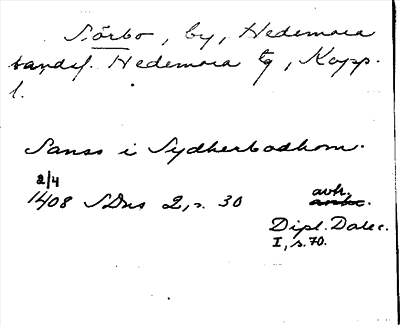 Sörbo, by, Hedemora
landsf. Hedemora tg, Kopp.
l.
Sanss i Sydherbodhom.
2/4
1408 SDns 2, s. 30 avh.
Dipl. Dalec.
I, s. 70.